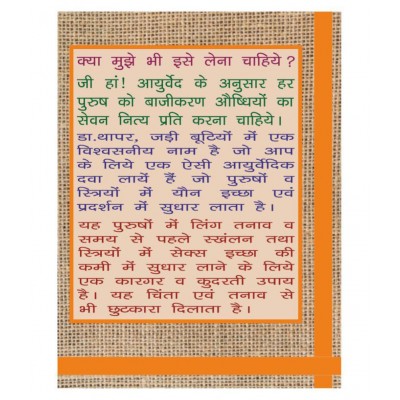 क्या मुझे भी इसे लेना चाहिये ?
जी हां! आयुर्वेद के अनुसार हर
पुरुष को बाजीकरण औष्धियों का
सेवन नित्य प्रति करना चाहिये।
डा.थापर, जड़ी बूटियों में एक
विश्वसनीय नाम है जो आप
के लिये एक ऐसी आयुर्वेदिक
दवा लायें हैं जो पुरुषों व
स्त्रियों में यौन इच्छा एवं
प्रदर्शन में सुधार लाता है।
यह पुरुषों में लिंग तनाव व
समय से पहले स्खंलन तथा
स्त्रियों में सेक्स इच्छा की
कमी में सुधार लाने के लिये
एक कारगर व कुदरती उपाय
है। यह चिंता एवं तनाव से
भी छुटकारा दिलाता है।